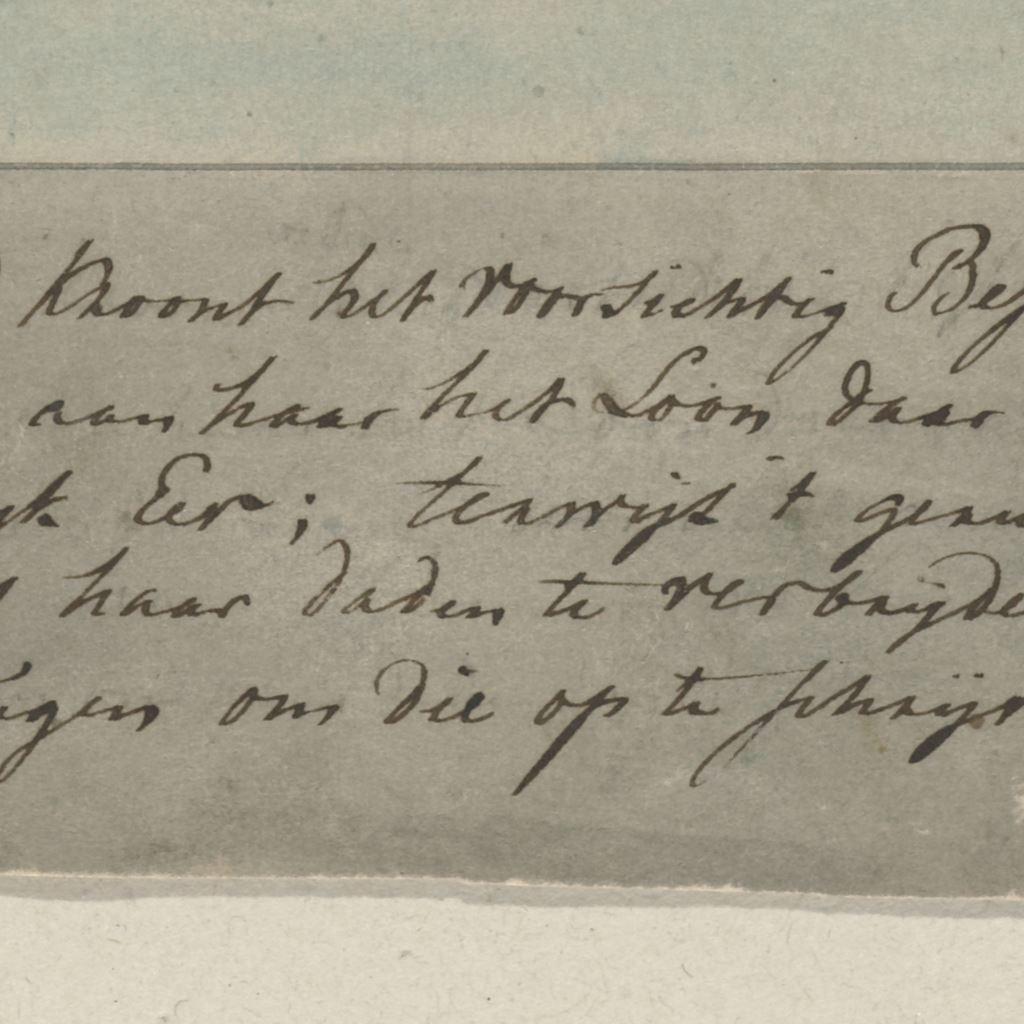 Kroont het voorsichtig Bes
aan haar het Loon daar
Eer; terwijl 't genu
haar daden te verbrijde
igen om die op te schrijv